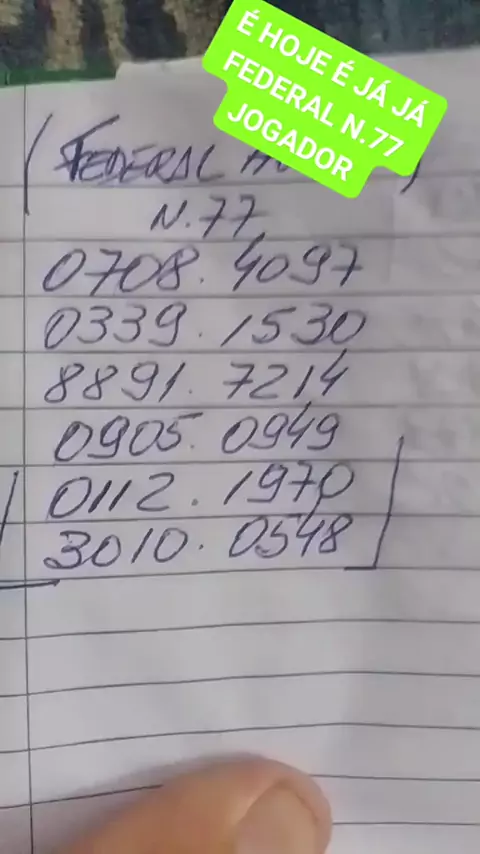 É HOJE É JÁ JÁ
FEDERAL N.77
JOGADOR
(FEDERAL )
N.77
0708.4097
0339.1530
8891.7214
0905.0949
0112.1970
3010.0548